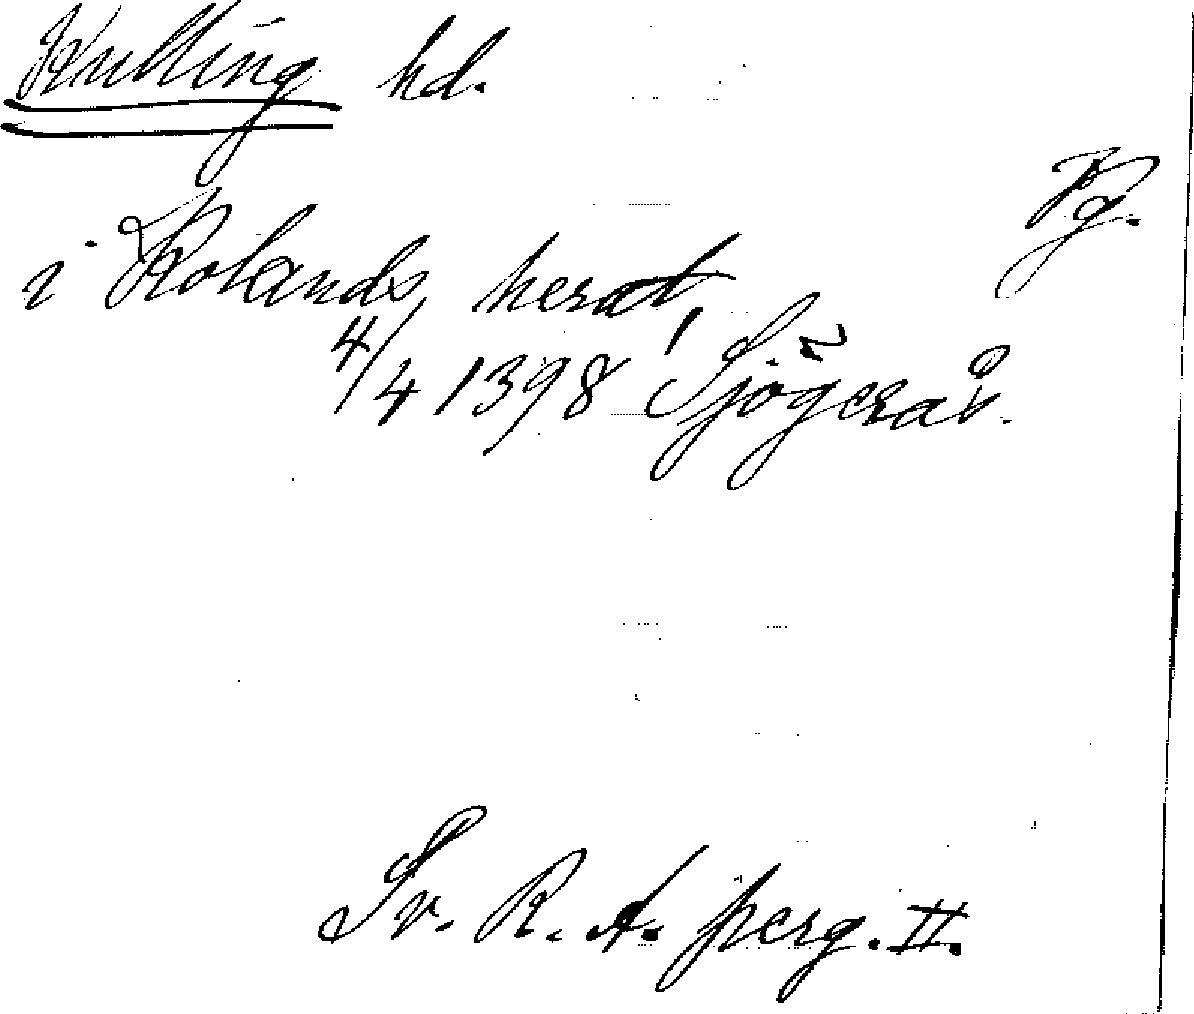 Kulling hd.
Vg.
i Kolands herat,
4/4 1398 Sjögerås.
Sv. R. A. perg. II.